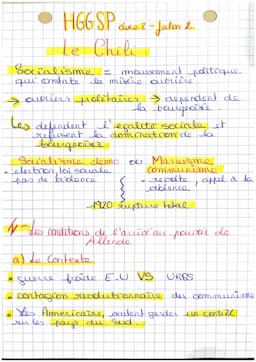 HGGSP axe 2 - Jalon 2
Le Chili
Socialisme = mouvement politique
qui constate la misère ouvrière.
→ ouvriers prolétaires → dépendent de
la bourgeoisie.
Les défendent l'égalité sociale et
refusent la domination de la
bourgeoisie
Socialisme démo ou Marxisme
communisme
• election, loi sociale
pas de violence
- révolte, appel à la
violence
1920 rupture total
les conditions de l'arrivé au pouvoir de
Allende
a) Le Contexte
• guerre froide E.U VS URSS
• contagion révolutionnaire des communisme
• Les Américains, veulent garder un contrôle
sur les pays du Sud.